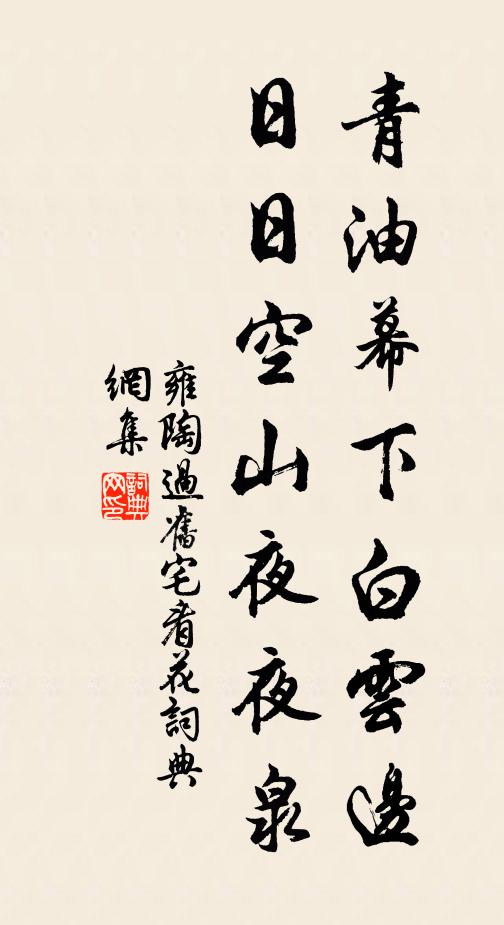 青油幕下白雲邊
日日空山夜夜泉
雍陶過舊宅看花詞典
網集
詞典
网印